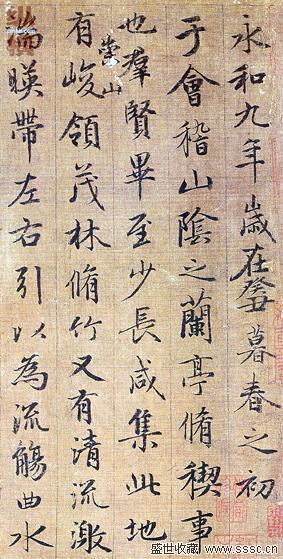 永和九年歲在癸丑暮春之初
于會稽山陰之蘭亭脩稧事
也羣賢畢至少長咸集此地
有崇山峻領茂林脩竹又有清流激
湍暎帶左右引以為流觴曲水
盛世收藏 www.sssc.cn